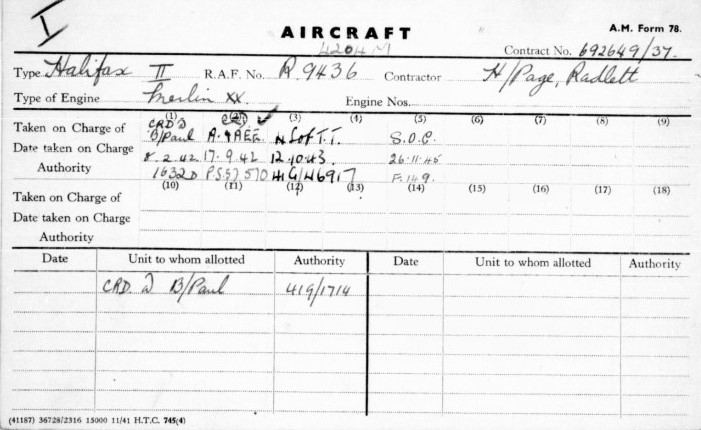 I
AIRCRAFT
A.M. Form 78.
4204M
Contract No. 692649/37.
Type Halifax II R.A.F. No. R.9436 Contractor H/Page, Radlett
Type of Engine Merlin XX. Engine Nos.
(1) (2) (3) (4) (5) (6) (7) (8) (9)
CRD @ CRD
Taken on Charge of B/Paul A.&AEE. S.O.C.
Date taken on Charge 8.2.42 17.9.42 12.10.43. 26.11.45
Authority 1632D 41G/46917 F.149.
(10) (11) (12) (13) (14) (15) (16) (17) (18)
Taken on Charge of
Date taken on Charge
Authority
Date Unit to whom allotted Authority Date Unit to whom allotted Authority
CRD. @ B/Paul 419/1714
(41187) 36728/2316 15000 11/41 H.T.C. 745(4)